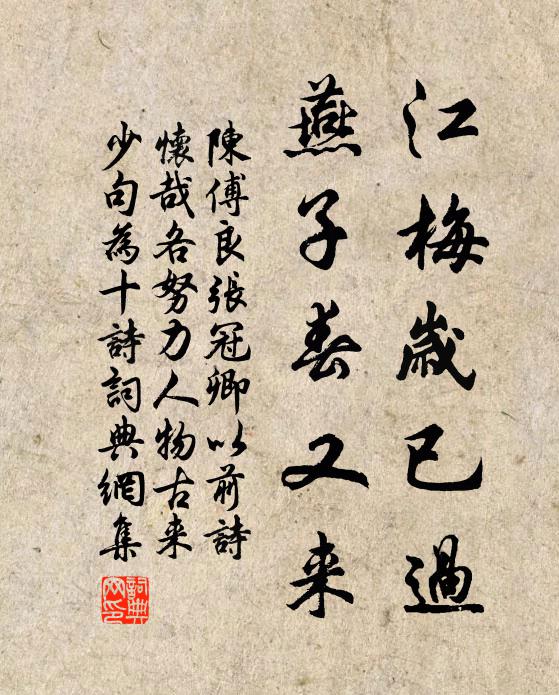 江梅歲已過
燕子春又来
陳傅良張冠卿以前詩
懷哉各努力人物古来
少句為十詩詞典網集
詞典
网印